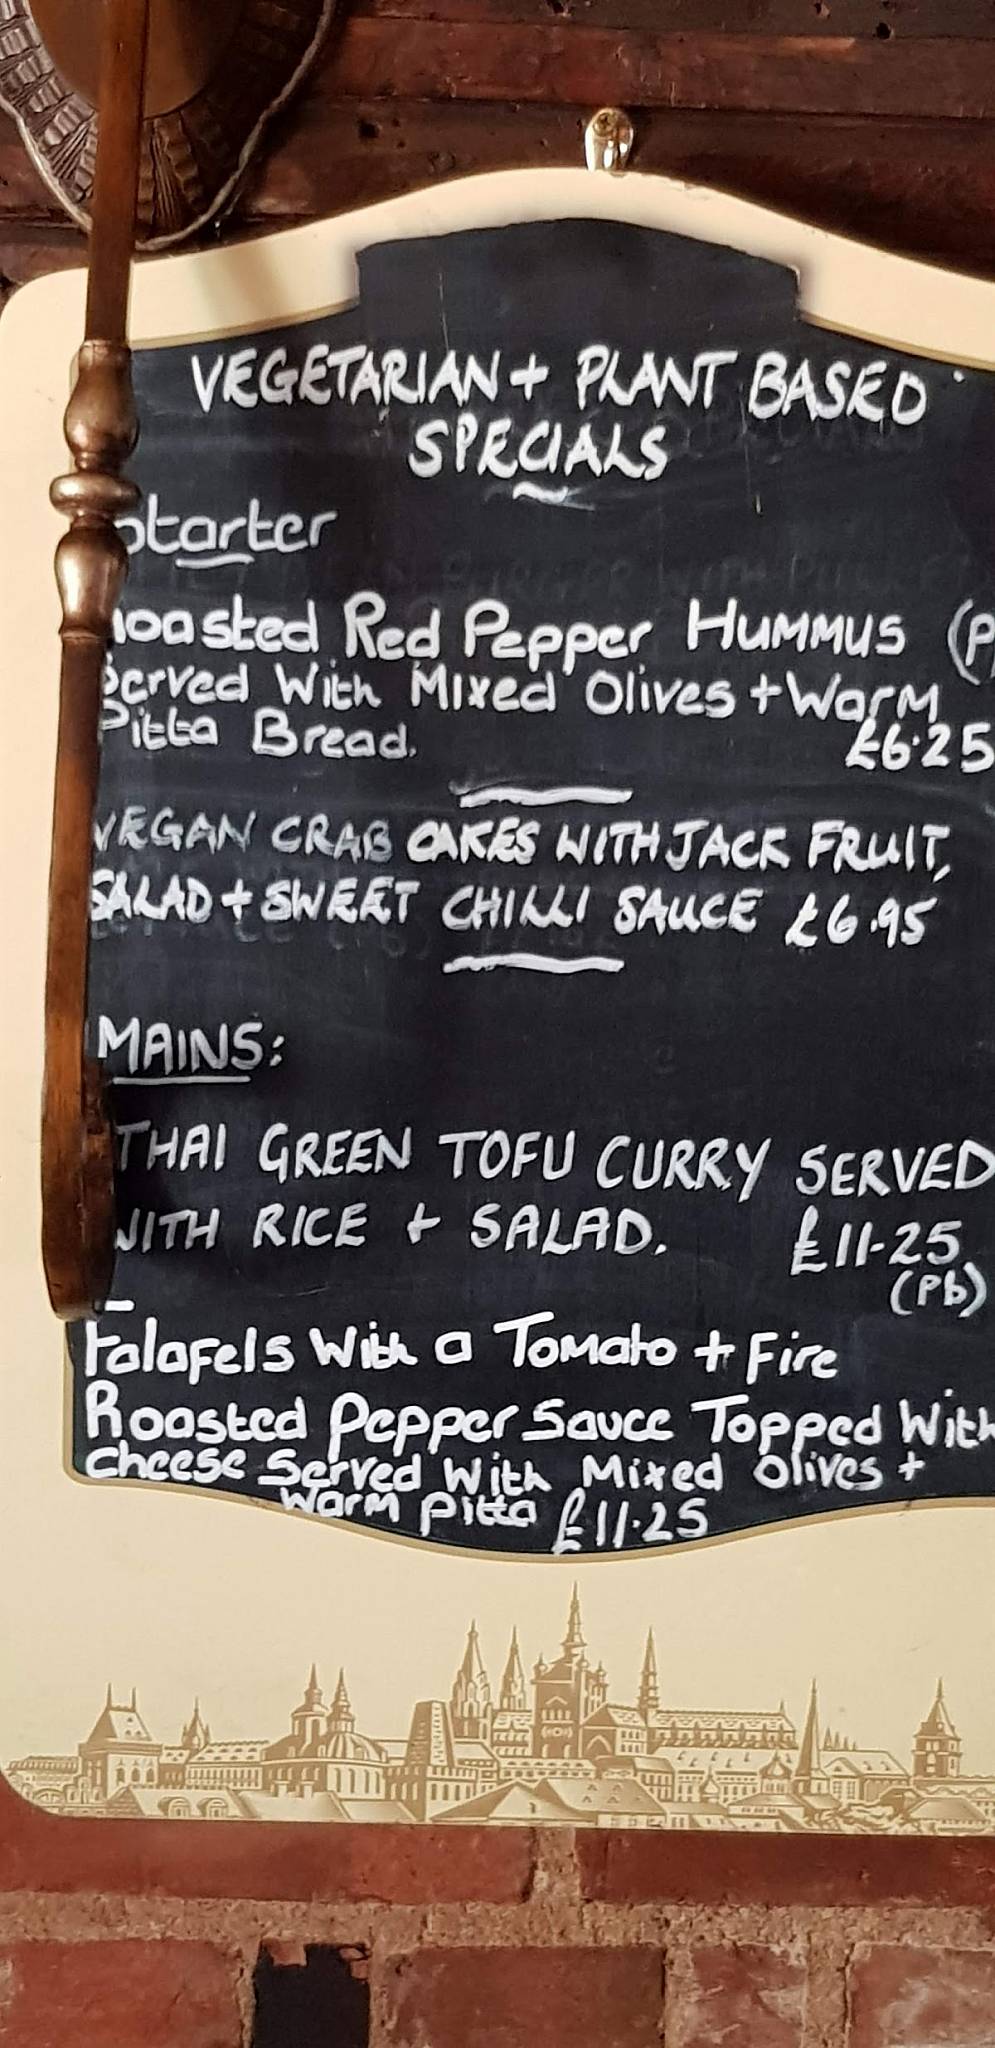 VEGETARIAN + PLANT BASED
SPECIALS
Starter
Roasted Red Pepper HUMMUS (P
Served With Mixed Olives + Warm
Pitta Bread. £6.25
VEGAN CRAB CAKES WITH JACK FRUIT,
SALAD + SWEET CHILLI SAUCE £6.95
MAINS:
THAI GREEN TOFU CURRY SERVED
WITH RICE + SALAD. £11-25
(Pb)
Falafels With a Tomato + Fire
Roasted Pepper Sauce Topped With
Cheese Served With Mixed Olives +
Warm Pitta £11.25